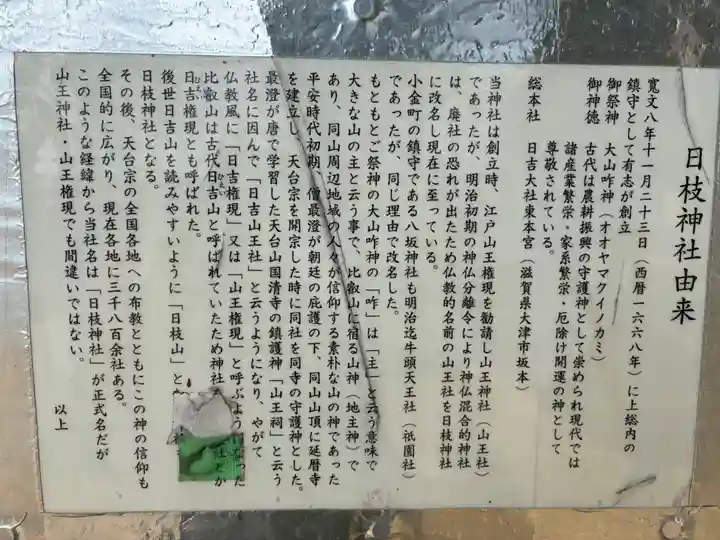 日枝神社由来
寛文八年十一月二十三日（西暦一六六八年）に上総内の
鎮守として有志が創立
御祭神　大山咋神（オオヤマクイノカミ）
御神徳　古代は農耕振興の守護神として崇められ現代では
諸産業繁栄・家系繁栄・厄除け開運の神として
尊敬されている。
総本社　日吉大社東本宮（滋賀県大津市坂本）
当神社は創立時、江戸山王権現を勧請し山王神社（山王社）
であったが、明治初期の神仏分離令により神仏混合的神社
は、廃社の恐れが出たため仏教的名前の山王社を日枝神社
に改名し現在に至っている。
小金町の鎮守である八坂神社も明治迄牛頭天王社（祇園社）
であったが、同じ理由で改名した。
もともとご祭神の大山咋神の「咋」は「主」と云う意味で
大きな山の主と云う事で、比叡山に宿る山神（地主神）で
あり、同山周辺地域の人々が信仰する素朴な山の神であった
平安時代初期、僧最澄が朝廷の庇護の下、同山山頂に延暦寺
を建立し、天台宗を開宗した時に同社を同寺の守護神とした。
最澄が唐で学習した天台山国清寺の鎮護神「山王祠」と云う
社名に因んで「日吉山王社」と云うようになり、やがて
仏教風に「日吉権現」又は「山王権現」と呼ぶようになった
比叡山は古代日吉山と呼ばれていたため神社 社とか
日吉権現とも呼ばれた。
ひえ
ひえ
後世日吉山を読みやすいように「日枝山」と
日枝神社となる。
その後、天台宗の全国各地への布教とともにこの神の信仰も
全国的に広がり、現在各地に三千八百余社ある。
このような経緯から当社名は「日枝神社」が正式名だが
山王神社・山王権現でも間違いではない。
以上